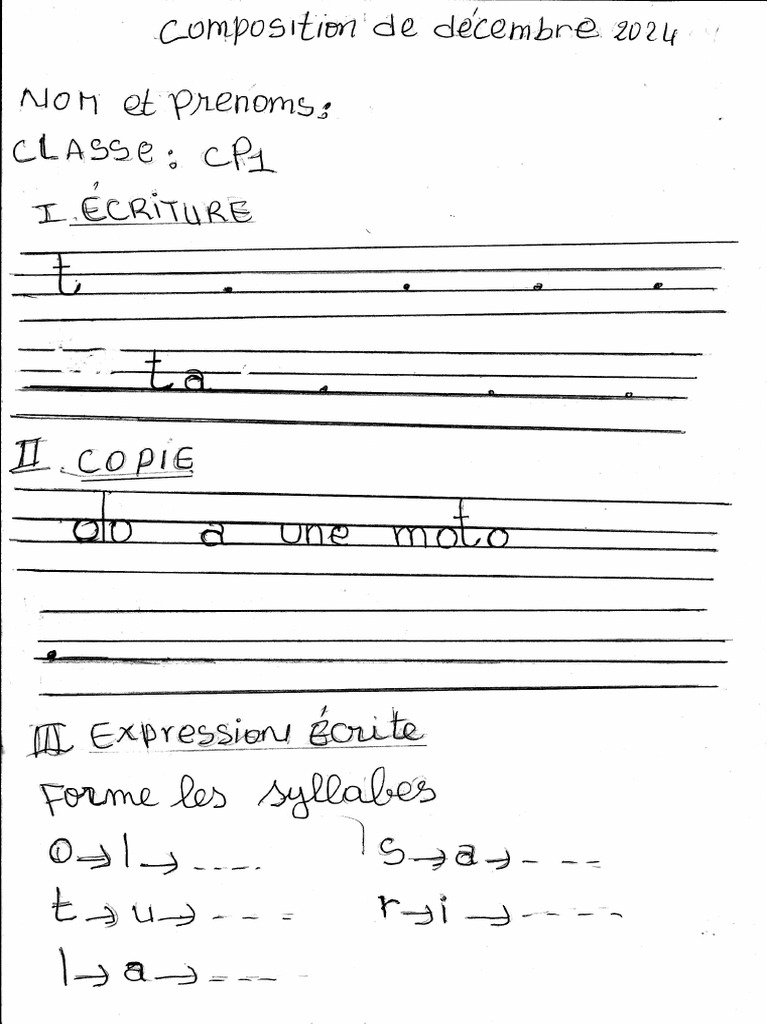 Composition de décembre 2024
NOM et prenoms:
CLASSE: CP1
I. ÉCRITURE
t . . . .
ta . . .
II. COPIE
olo a une moto
.
III Expression Écrite
Forme les syllabes
o→l→ .... s→a→ - - --
t→u→ - - - - r→i→ -----
l→a→ ----